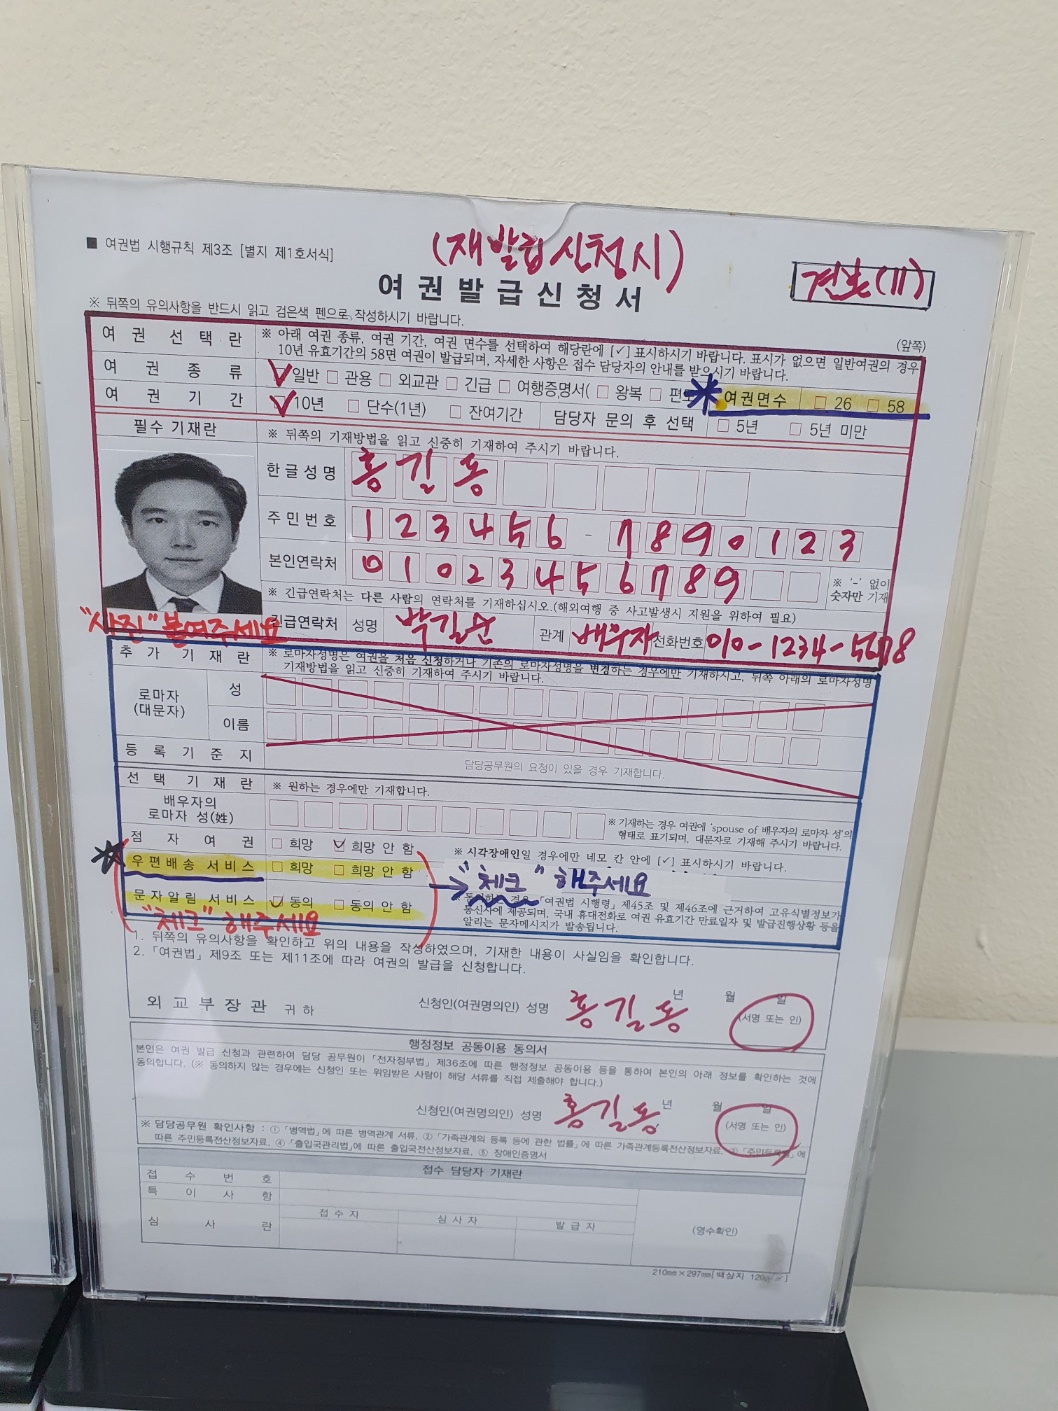 ■ 여권법 시행규칙 제3조 [별지 제1호서식]
(재발급신청시)
견본(11)
여권발급신청서
※ 뒤쪽의 유의사항을 반드시 읽고 검은색 펜으로 작성하시기 바랍니다.
(앞쪽)
여권선택란 ※ 아래 여권 종류, 여권 기간, 여권 면수를 선택하여 해당란에 [✓] 표시하시기 바랍니다. 표시가 없으면 일반여권의 경우
10년 유효기간의 58면 여권이 발급되며, 자세한 사항은 접수 담당자의 안내를 받으시기 바랍니다.
여권종류 ✓ 일반 □ 관용 □ 외교관 □ 긴급 □ 여행증명서( □ 왕복 □ 편 여권면수 □ 26 □ 58
여권기간 ✓ 10년 □ 단수(1년) □ 잔여기간 담당자 문의 후 선택 □ 5년 □ 5년 미만
필수 기재란 ※ 뒤쪽의 기재방법을 읽고 신중히 기재하여 주시기 바랍니다.
한글성명 홍길동
주민번호 123456 - 7890123
본인연락처 01023456789 ※ '-' 없이
숫자만 기재
※ 긴급연락처는 다른 사람의 연락처를 기재하십시오.(해외여행 중 사고발생시 지원을 위하여 필요)
"사진" 붙여주세요
긴급연락처 성명 박길순 관계 배우자 전화번호 010-1234-5678
추가기재란 ※ 로마자성명은 여권을 처음 신청하거나 기존의 로마자성명을 변경하는 경우에만 기재하시고, 뒤쪽 아래의 로마자성명
기재방법을 읽고 신중히 기재하여 주시기 바랍니다.
로마자
(대문자)
성
이름
등록기준지 담당공무원의 요청이 있을 경우 기재합니다.
선택기재란 ※ 원하는 경우에만 기재합니다.
배우자의
로마자 성(姓)
※ 기재하는 경우 여권에 'spouse of 배우자의 로마자 성'의
형태로 표기되며, 대문자로 기재해 주시기 바랍니다.
점자여권 □ 희망 ✓ 희망 안 함 ※ 시각장애인일 경우에만 네모 칸 안에 [✓] 표시하시기 바랍니다.
우편배송 서비스 □ 희망 □ 희망 안 함
"체크" 해주세요
문자알림 서비스 ✓ 동의 □ 동의 안 함
「여권법 시행령」 제45조 및 제46조에 근거하여 고유식별정보가
통신사에 제공되며, 국내 휴대전화로 여권 유효기간 만료일자 및 발급진행상황 등을
알리는 문자메시지가 발송됩니다.
"체크" 해주세요
1. 뒤쪽의 유의사항을 확인하고 위의 내용을 작성하였으며, 기재한 내용이 사실임을 확인합니다.
2. 「여권법」 제9조 또는 제11조에 따라 여권의 발급을 신청합니다.
년 월 일
외교부장관 귀하 신청인(여권명의인) 성명 홍길동 (서명 또는 인)
행정정보 공동이용 동의서
본인은 여권 발급 신청과 관련하여 담당 공무원이 「전자정부법」 제36조에 따른 행정정보 공동이용 등을 통하여 본인의 아래 정보를 확인하는 것에
동의합니다. (※ 동의하지 않는 경우에는 신청인 또는 위임받은 사람이 해당 서류를 직접 제출해야 합니다.)
년 월 일
신청인(여권명의인) 성명 홍길동 (서명 또는 인)
※ 담당공무원 확인사항 : ① 「병역법」에 따른 병역관계 서류, ② 「가족관계의 등록 등에 관한 법률」에 따른 가족관계등록전산정보자료, ③ 「주민등록법」에
따른 주민등록전산정보자료, ④ 「출입국관리법」에 따른 출입국전산정보자료, ⑤ 장애인증명서
접수 담당자 기재란
접수번호
특이사항
심사란 접수자 심사자 발급자 (영수확인)
210㎜×297㎜[백상지